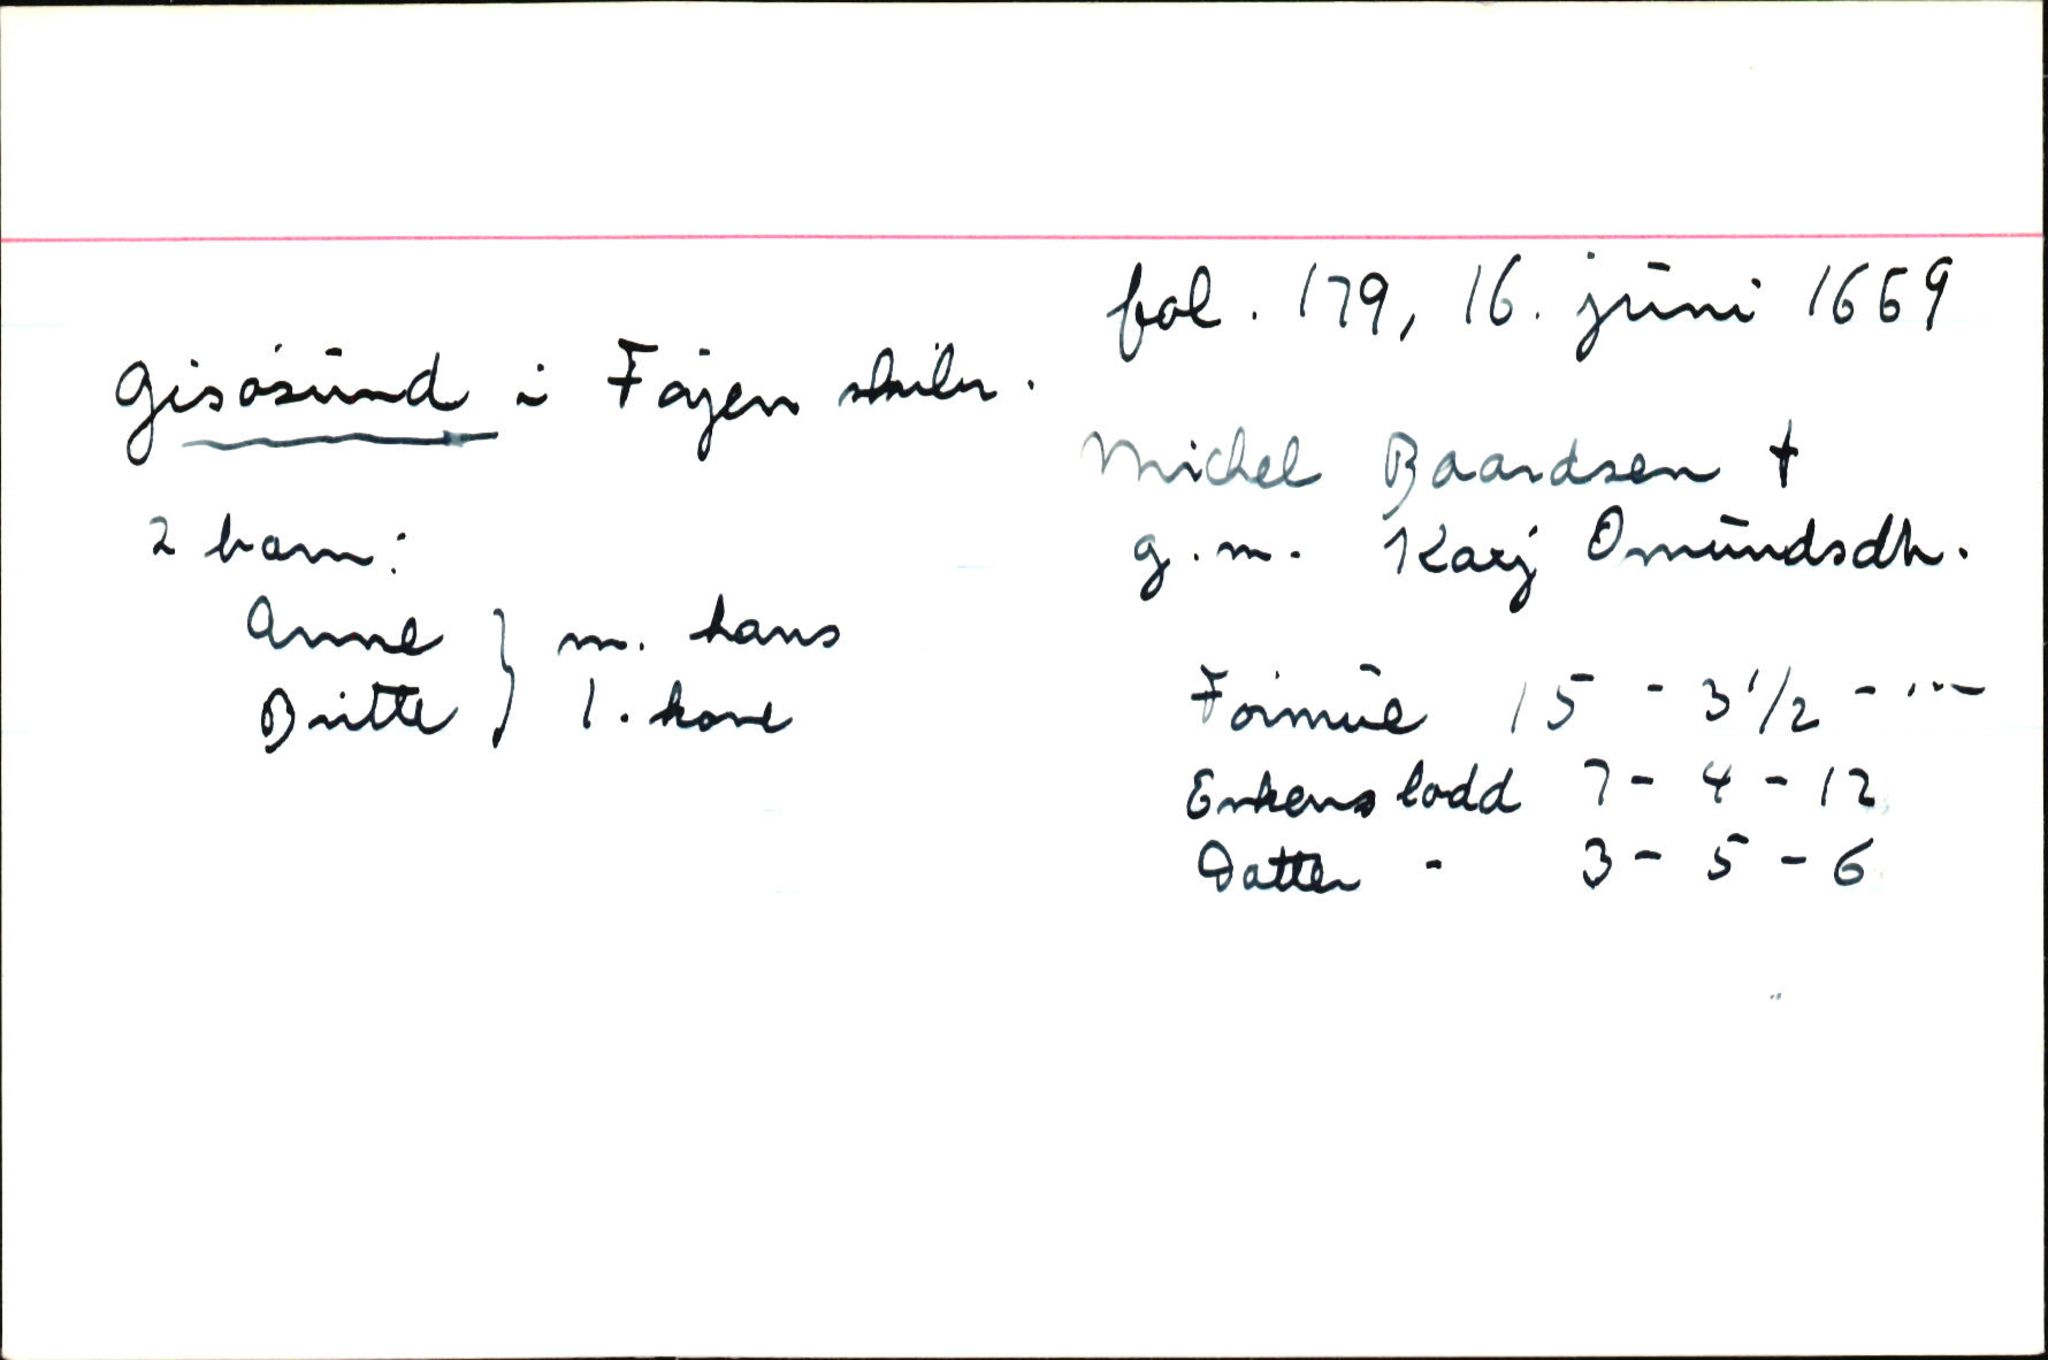 fol. 179, 16. juni 1669
Gisøsund i Føyen skibr.
Michel Baardsen †
2 barn:
g. m. Karj Omundsdtr.
Anne } m. hans
Britte } 1. kone
Formue 15 - 3 1/2 - "-
Enkens lodd 7 - 4 - 12
Datter - 3 - 5 - 6